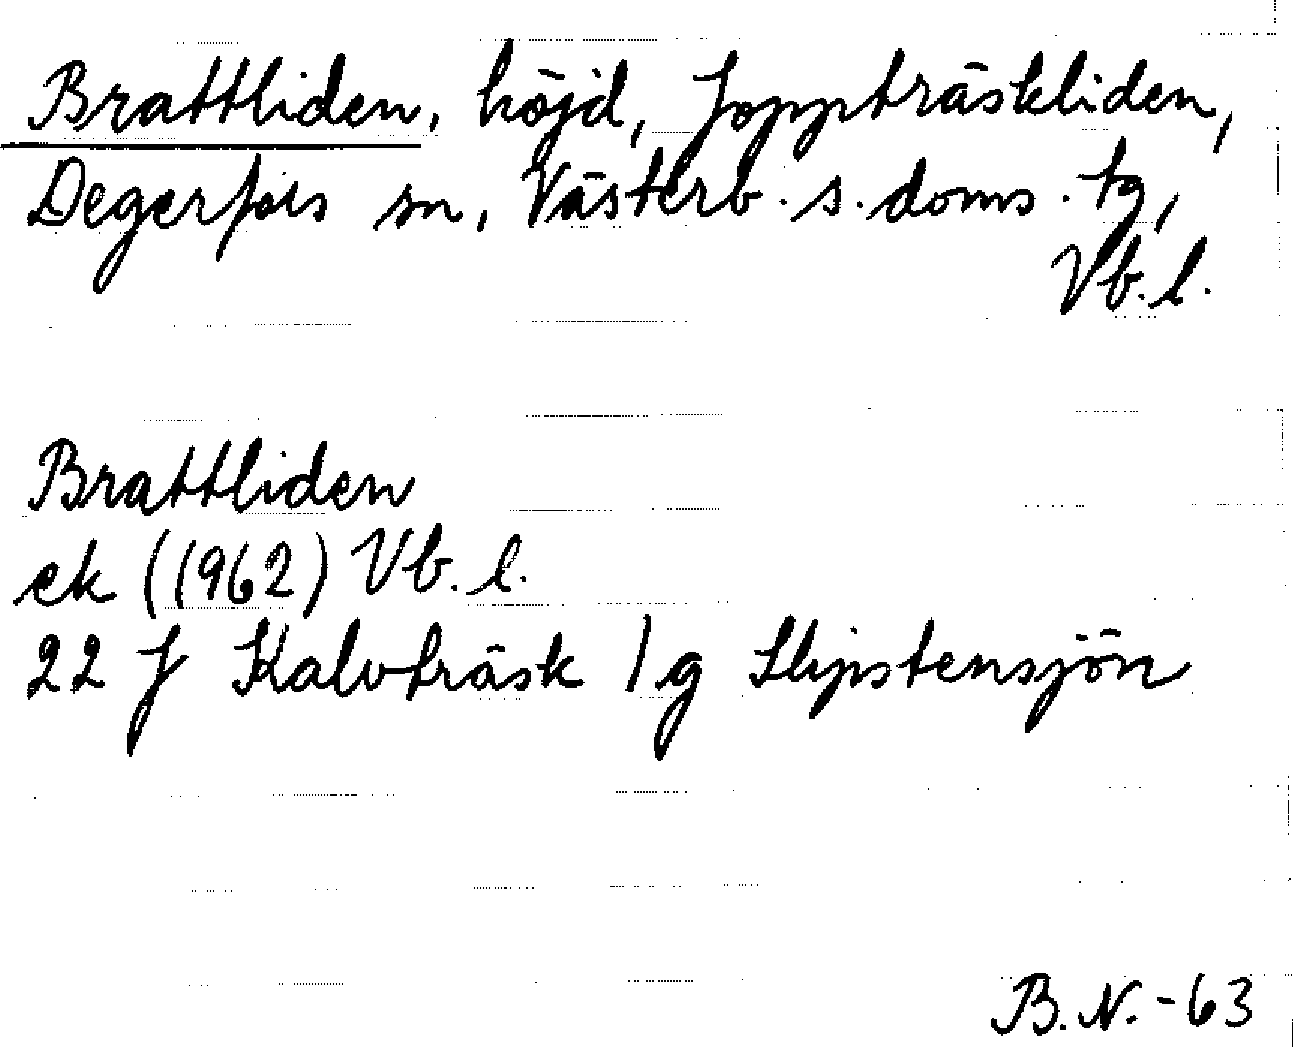 Brattliden, höjd, Joppträskliden,
Degerfors sn, Västerb. s. doms. tg,
Vb. l.
Brattliden
ek (1962) Vb. l.
22 J Kalvträsk 1 g Slipstensjön
B. N. -63